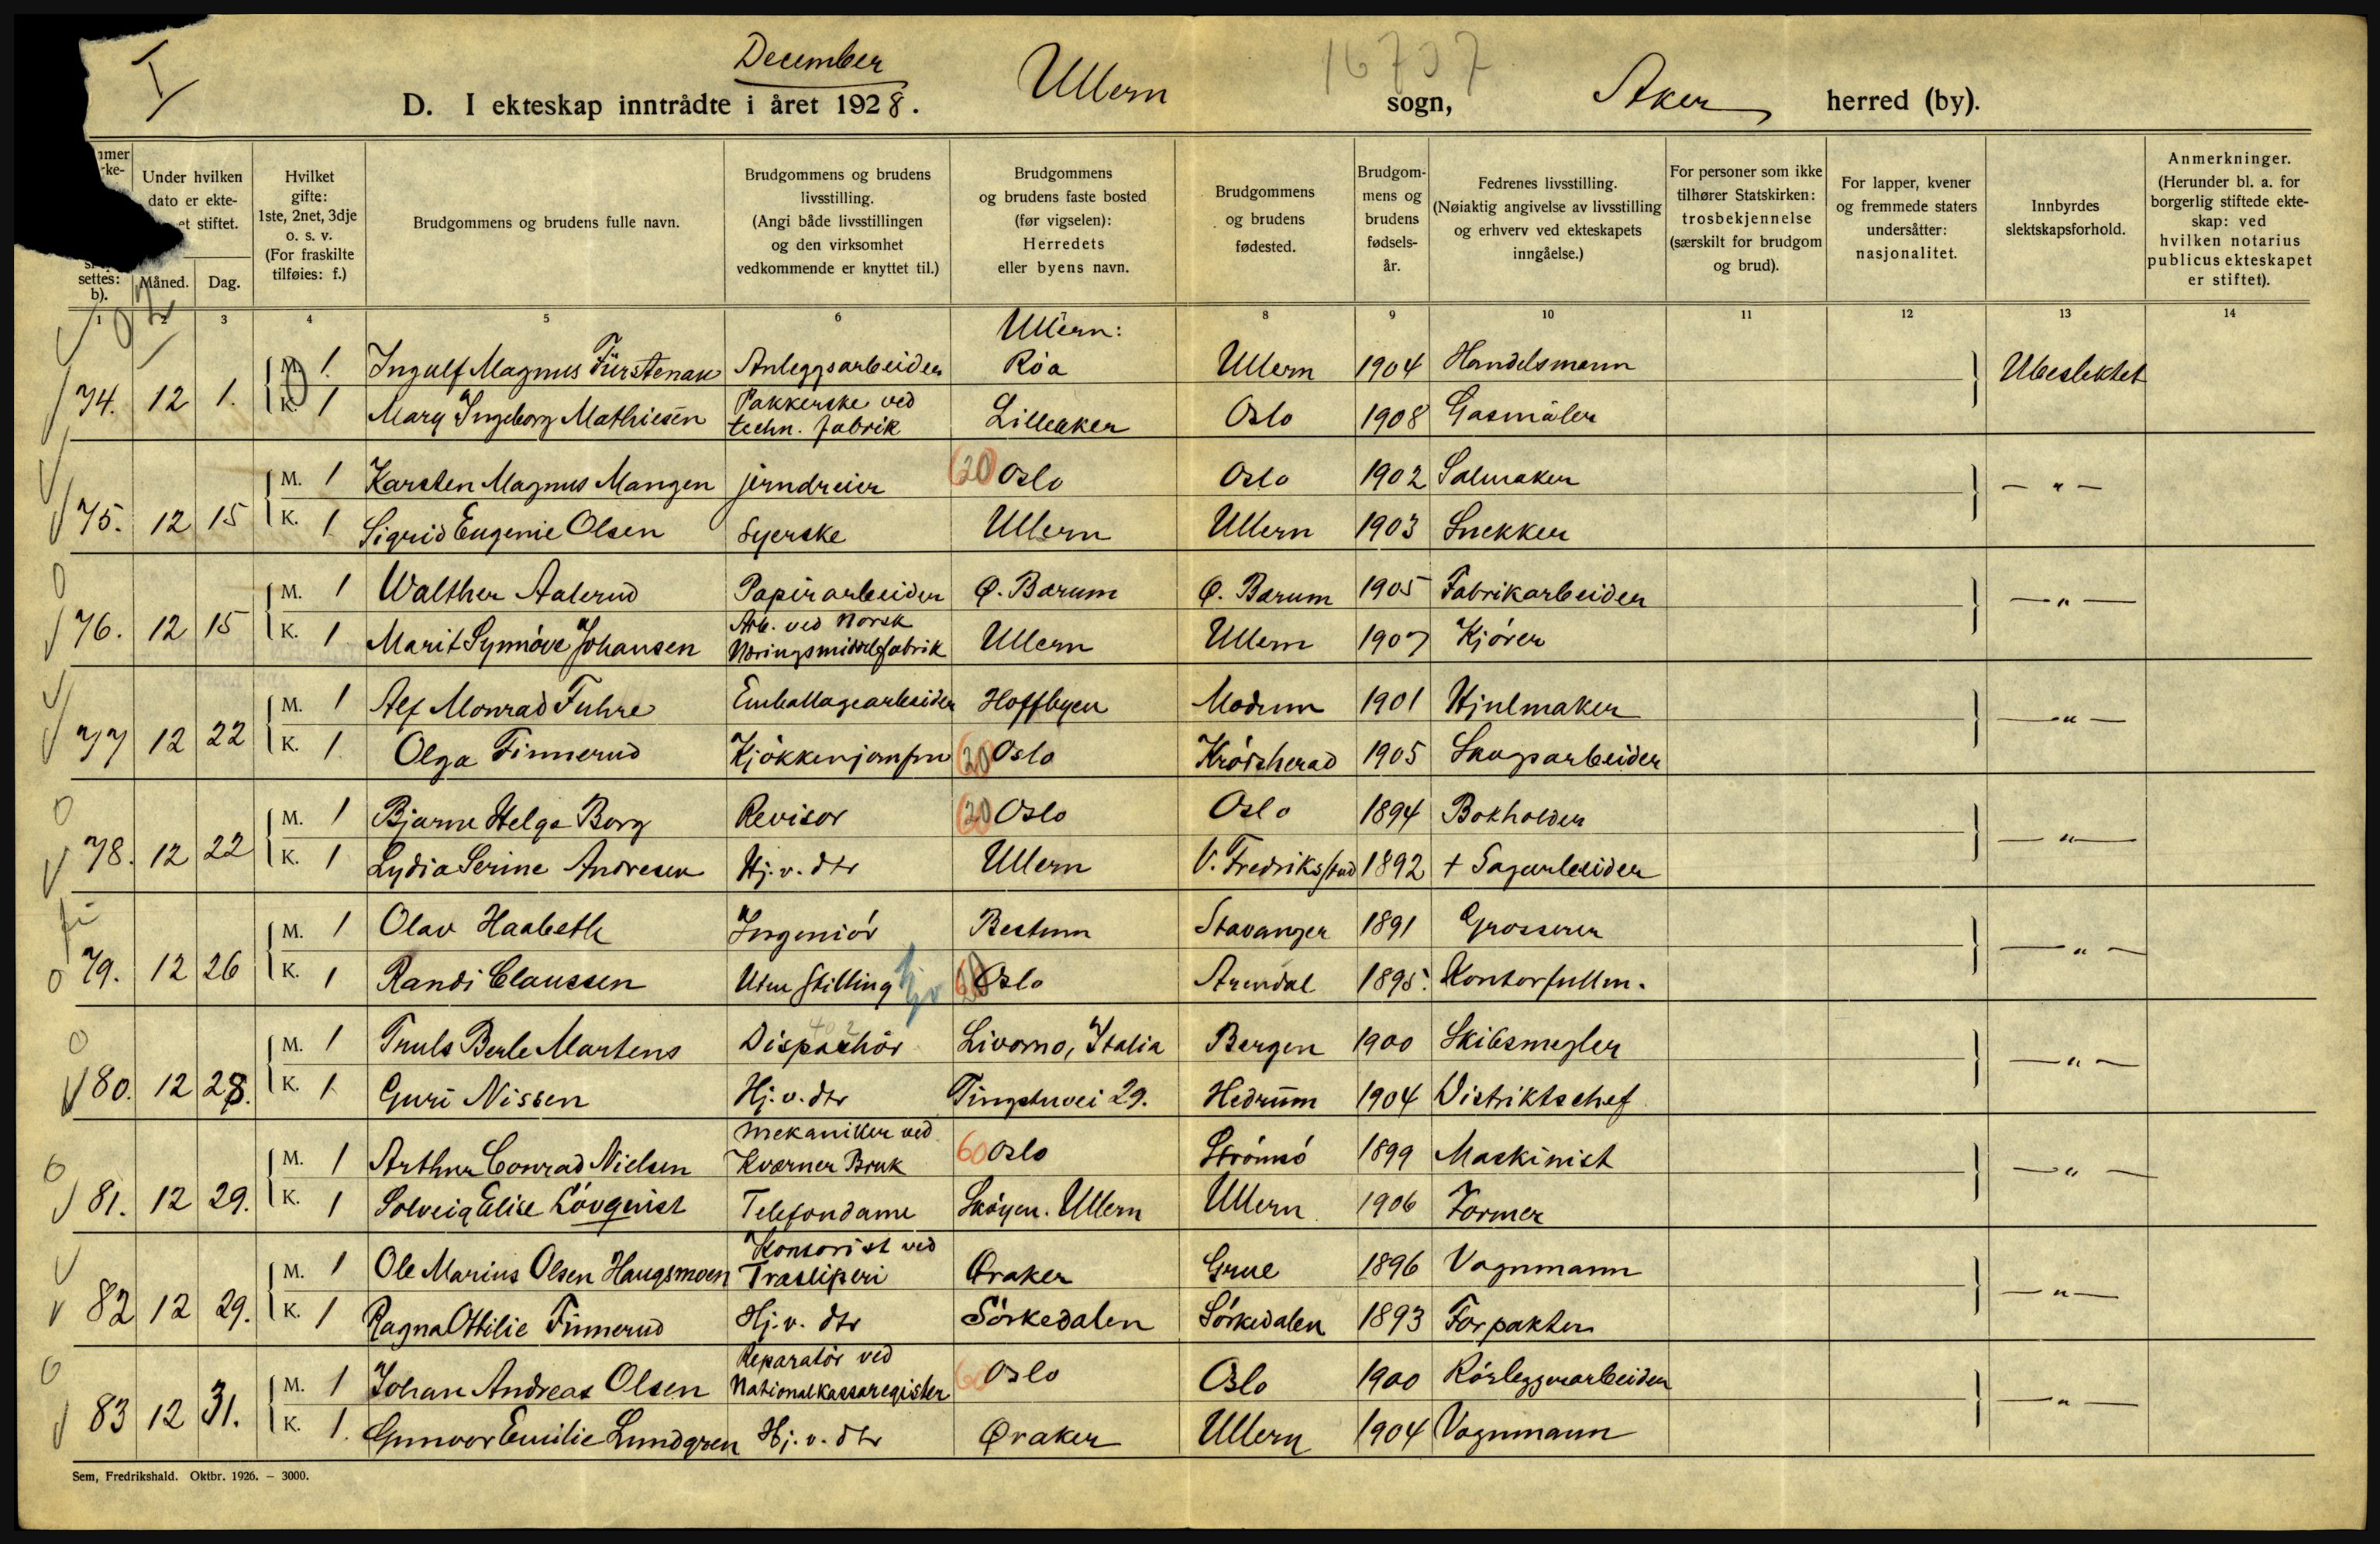 I
December
Ullern
16707
Aker
D. I ekteskap inntrådte i året 1928. sogn, herred (by).
settes:
b).
Under hvilken
dato er ekte-
et stiftet.
Måned. Dag.
Hvilket
gifte:
1ste, 2net, 3dje
o. s. v.
(For fraskilte
tilføies: f.)
Brudgommens og brudens fulle navn.
Brudgommens og brudens
livsstilling.
(Angi både livsstillingen
og den virksomhet
vedkommende er knyttet til.)
Brudgommens
og brudens faste bosted
(før vigselen):
Herredets
eller byens navn.
Brudgommens
og brudens
fødested.
Brudgom-
mens og
brudens
fødsels-
år.
Fedrenes livsstilling.
(Nøiaktig angivelse av livsstilling
og erhverv ved ekteskapets
inngåelse.)
For personer som ikke
tilhører Statskirken:
trosbekjennelse
(særskilt for brudgom
og brud).
For lapper, kvener
og fremmede staters
undersåtter:
nasjonalitet.
Innbyrdes
slektskapsforhold.
Anmerkninger.
(Herunder bl. a. for
borgerlig stiftede ekte-
skap: ved
hvilken notarius
publicus ekteskapet
er stiftet).
1 2 3 4 5 6 7 8 9 10 11 12 13 14
Ullern:
M. 1. Ingulf Magnus Fürstenau Anleggsarbeider Röa Ullern 1904 Handelsmann Ubeslektet
74. 12 1. K. 1 Mary Ingeborg Mathiesen Pakkerske ved techn. fabrik Lilleaker Oslo 1908 Gasmåler
M. 1 Karsten Magnus Mangen jerndreier 20 Oslo Oslo 1902 Salmaker — " —
75. 12 15 K. 1 Sigrid Eugenie Olsen Syerske Ullern Ullern 1903 Snekker
M. 1 Walther Aalerud Papirarbeider Ø. Bærum Ø. Bærum 1905 Fabrikarbeider — " —
76. 12 15 K. 1 Marit Synnöve Johansen Arb. ved Norsk Næringsmiddelfabrik Ullern Ullern 1907 Kjörer
M. 1 Alf Monrad Fuhre Emballagearbeider Hoffbyen Modum 1901 Hjulmaker — " —
77 12 22 K. 1 Olga Finnerud Kjökkenjomfru 20 Oslo Krödsherad 1905 Skogsarbeider
M. 1 Bjarne Helge Borg Revisor 20 Oslo Oslo 1894 Bokholder — " —
78. 12 22 K. 1 Lydia Serine Andresen Hj. v. dtr Ullern V. Fredrikstad 1892 + Sagarbeider
M. 1 Olav Haabeth Ingeniör Bestum Stavanger 1891 Grosserer — " —
79. 12 26 K. 1 Randi Claussen Uten stilling Oslo Arendal 1895. Kontorfullm.
M. 1 Truls Berle Martens Dispachör Livorno, Italia Bergen 1900 Skibsmegler — " —
80. 12 28. K. 1 Guri Nissen Hj. v. dtr Tingstuvei 29. Hedrum 1904 Distriktschef
M. 1 Arthur Conrad Nielsen Mekaniker ved Kværner Bruk 60 Oslo Strömsö 1899 Maskinist — " —
81. 12 29. K. 1 Solveig Elise Lövqvist Telefondame Sköyen. Ullern Ullern 1906 Former
M. 1 Ole Marius Olsen Haugsmoen Kontorist ved Træsliperi Øraker Grue 1896 Vognmann — " —
82 12 29. K. 1 Ragna Ottilie Finnerud Hj. v. dtr Sörkedalen Sörkedalen 1893 Forpakter
M. 1 Johan Andreas Olsen Reparatör ved Nationalkassaregister 60 Oslo Oslo 1900 Rörleggerarbeider — " —
83 12 31. K. 1. Gunvor Emilie Lundgren Hj. v. dtr Øraker Ullern 1904 Vognmann
Sem, Fredrikshald. Oktbr. 1926. — 3000.